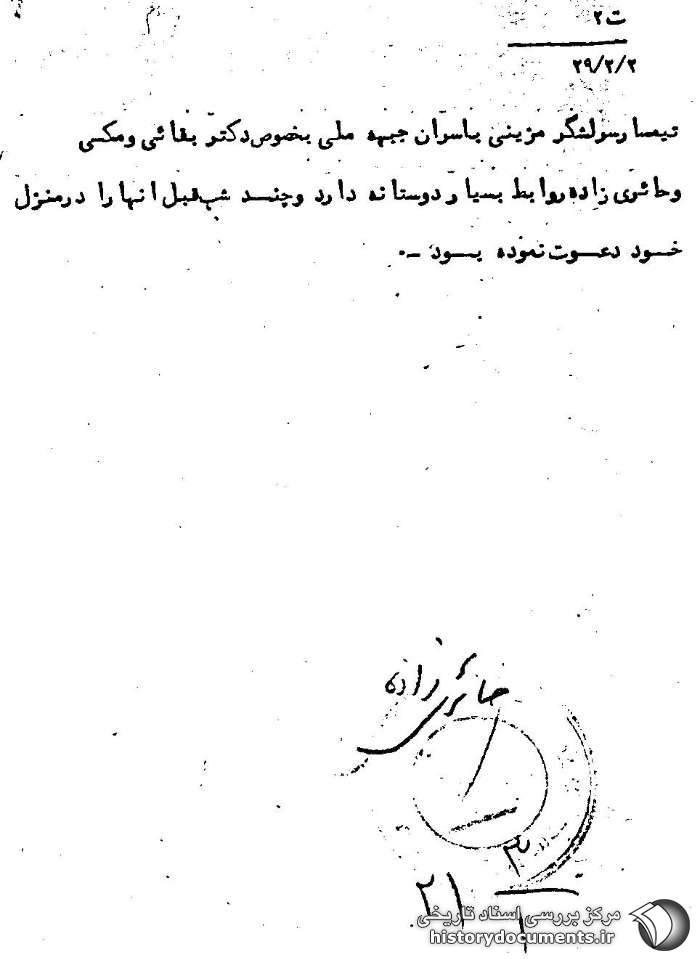 ت۲
۲۹/۲/۲
تیمسار سرلشگر مزینی باسران جبهه ملی بخصوص دکتر بقائی ومکی
وحائری زاده روابط بسیار دوستانه دارد وچند شب قبل انها را درمنزل
خود دعوت نموده بود -۰
حائری زاده
۳
۲۱
۱
مرکز بررسی اسناد تاریخی
historydocuments.ir